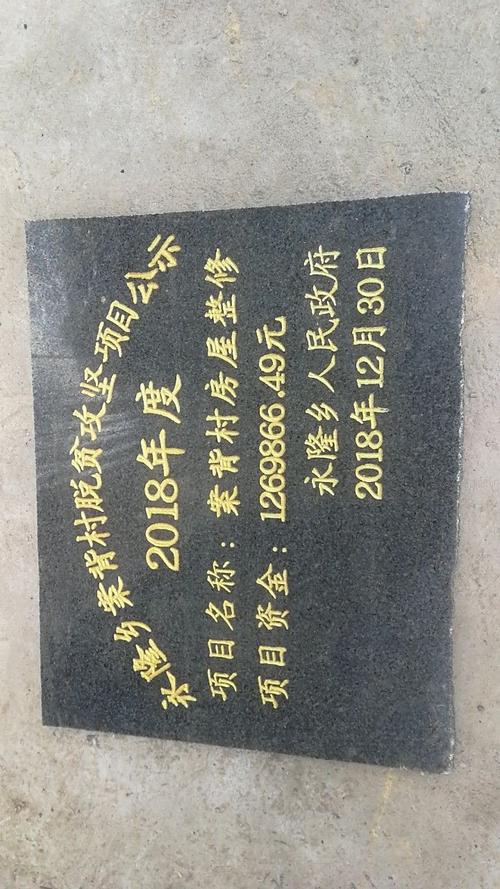 永隆乡案背村脱贫攻坚项目公示
2018年度
项目名称：案背村房屋整修
项目资金：1269866.49元
永隆乡人民政府
2018年12月30日